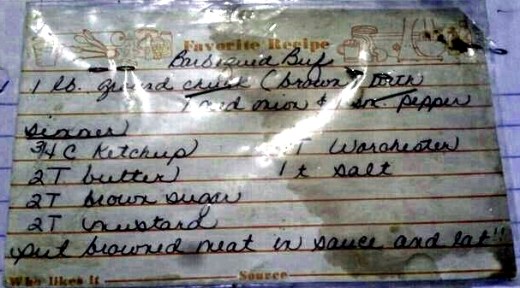 Favorite Recipe
Barbequed Beef
1 lb. ground chuck (brown) with
1 med onion & 1 sm. pepper
simmer
3/4 C Ketchup T Worchester
2T butter 1 t salt
2T brown sugar
2T mustard
put browned meat in sauce and eat!!
Who likes it Source